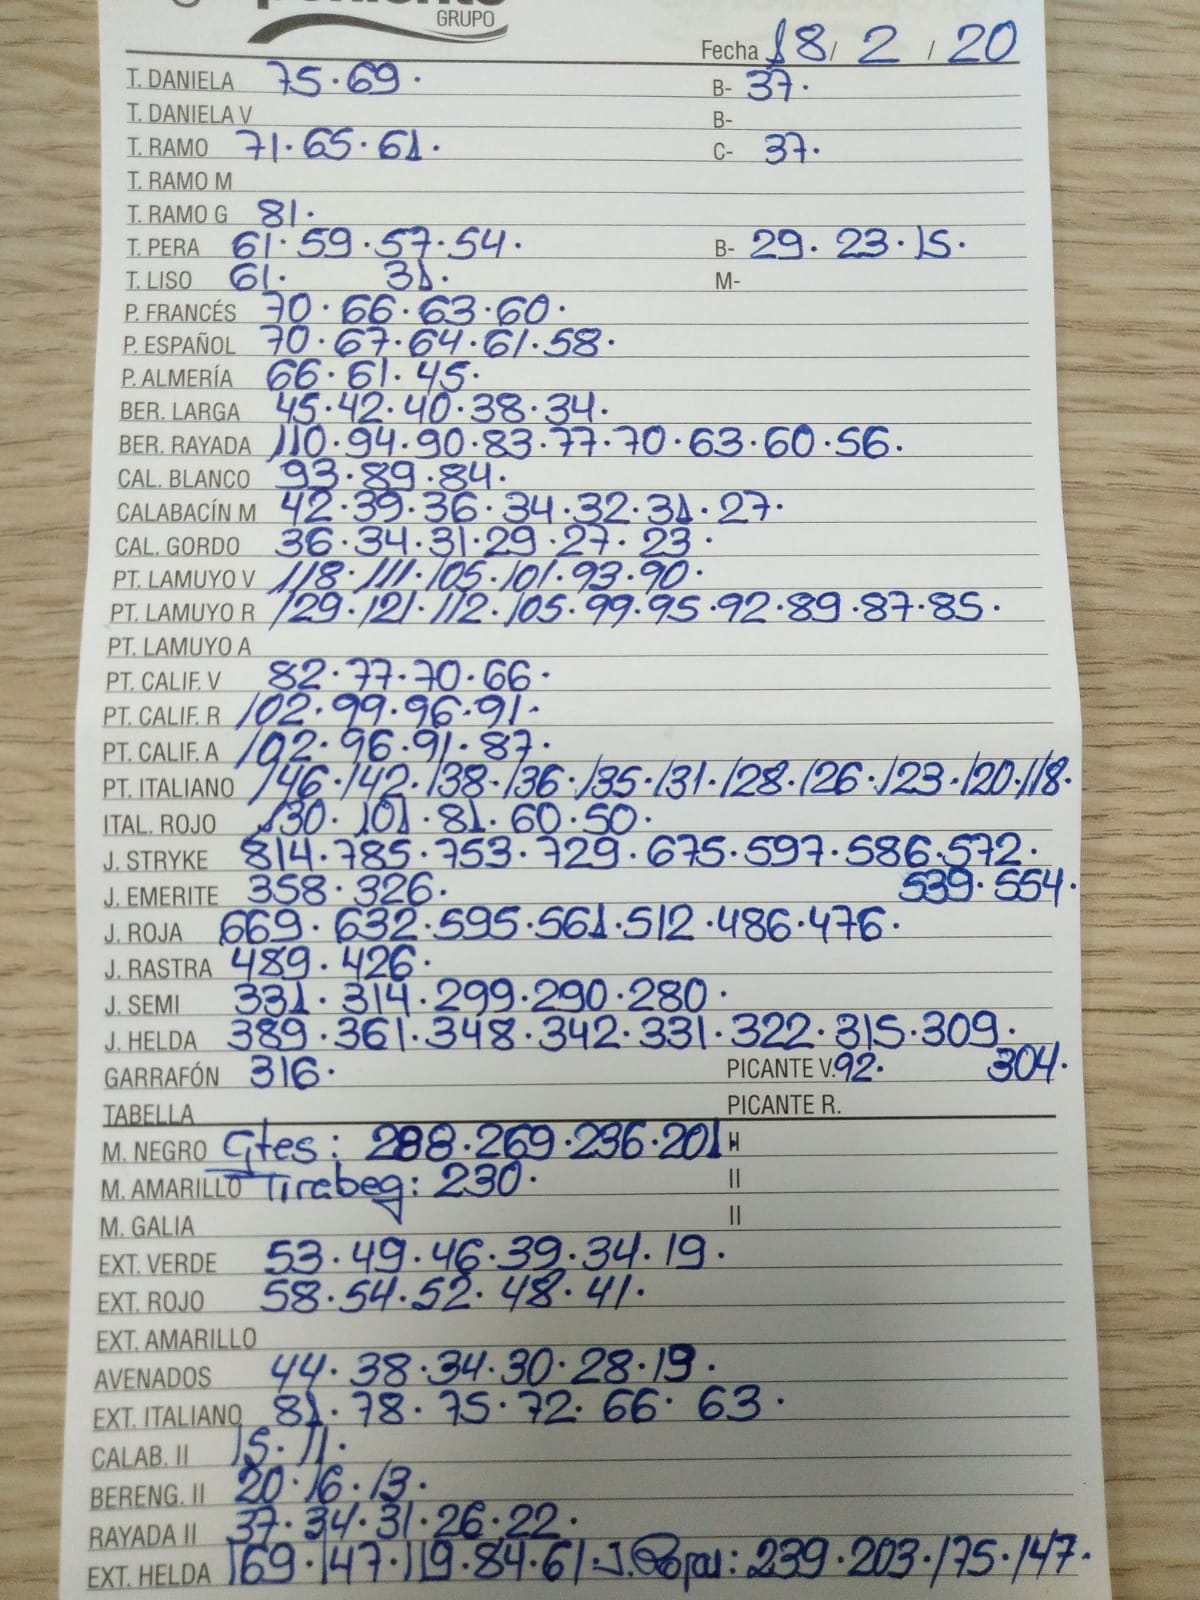 GRUPO
Fecha 18/ 2 / 20
T. DANIELA 75·69· B- 37·
T. DANIELA V B-
T. RAMO 71·65·61· C- 37·
T. RAMO M
T. RAMO G 81·
T. PERA 61·59·57·54· B- 29·23·15·
T. LISO 61· 31· M-
P. FRANCÉS 70·66·63·60·
P. ESPAÑOL 70·67·64·61·58·
P. ALMERÍA 66·61·45·
BER. LARGA 45·42·40·38·34·
BER. RAYADA 110·94·90·83·77·70·63·60·56·
CAL. BLANCO 93·89·84·
CALABACÍN M 42·39·36·34·32·31·27·
CAL. GORDO 36·34·31·29·27·23·
PT. LAMUYO V 118·111·105·101·93·90·
PT. LAMUYO R 129·121·112·105·99·95·92·89·87·85·
PT. LAMUYO A
PT. CALIF. V 82·77·70·66·
PT. CALIF. R 102·99·96·91·
PT. CALIF. A 102·96·91·87·
PT. ITALIANO 146·142·138·136·135·131·128·126·123·120·118·
ITAL. ROJO 130·101·81·60·50·
J. STRYKE 814·785·753·729·675·597·586·572·
J. EMERITE 358·326· 539·554·
J. ROJA 669·632·595·561·512·486·476·
J. RASTRA 489·426·
J. SEMI 331·314·299·290·280·
J. HELDA 389·361·348·342·331·322·315·309·
GARRAFÓN 316· PICANTE V. 92· 304·
TABELLA PICANTE R.
M. NEGRO Gtes: 288·269·236·201 II
M. AMARILLO Tirabeg: 230· II
M. GALIA II
EXT. VERDE 53·49·46·39·34·19·
EXT. ROJO 58·54·52·48·41·
EXT. AMARILLO
AVENADOS 44·38·34·30·28·19·
EXT. ITALIANO 81·78·75·72·66·63·
CALAB. II 15·11·
BERENG. II 20·16·13·
RAYADA II 37·34·31·26·22·
EXT. HELDA 169·147·119·84·61· J. : 239·203·175·147·